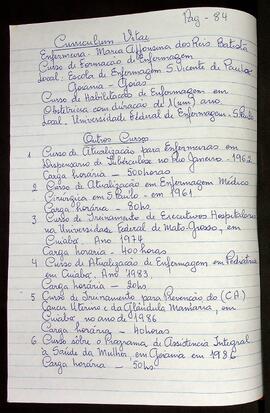 Pag - 84
Curriculum Vitae
Enfermeira - Maria Affonsina dos Reis Batista
Curso de Formação de Enfermagem
Local: Escola de Enfermagem S. Vicente de Paula
Goiania - Goias
Curso de Habilitação de Enfermagem em
Obstetricia com duração de 1 (um) ano
Local. Universidade Federal de Enfermagem. S. Paulo
Outros Cursos
1 Curso de Atualização para Enfermeiras em
Dispensario de Tuberculose no Rio Janeiro - 1962
Carga horária - 500 horas
2 Curso de Atualização em Enfermagem Médico
Cirurgica em S. Paulo - em 1961
Carga horária - 80hs
3 Curso de Treinamento de Executivos Hospitalares
na Universidade Federal de Mato-Grosso, em
Cuiabá. Ano 1974
Carga horaria - 400 horas
4 Curso de Atualização de Enfermagem em Pediatria
em Cuiabá. Ano 1983,
Carga horária - 20hs
5 Curso de Treinamento para Prevenção do (C.A.)
Cancer Uterino e da Glândula Mamária, em
Cuiabá, no ano de 1986
Carga horária - 40 horas
6 Curso sobre o Programa de Assistência Integral
à Saúde da Mulher, em Goiania em 1986
Carga horária - 50hs